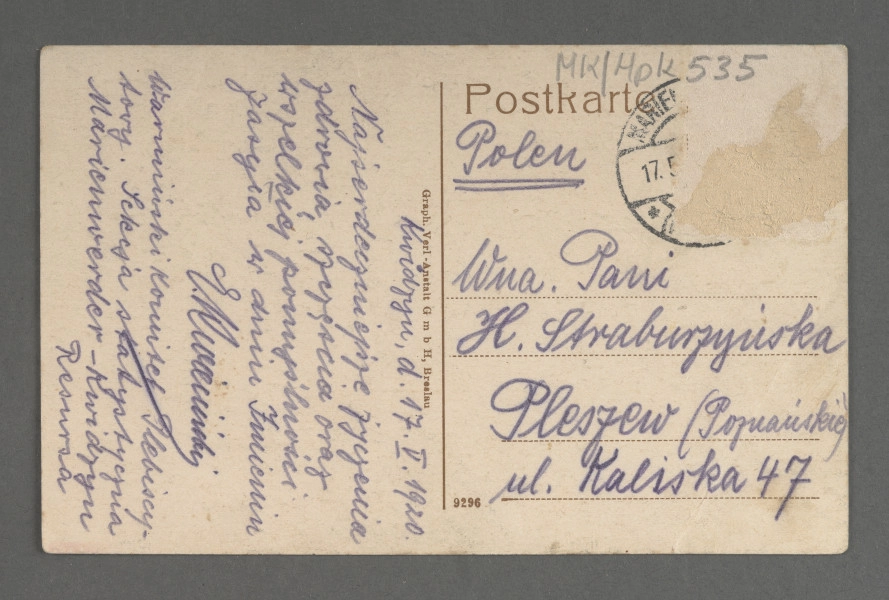 MK/Hpk 535
Postkarte
MARIE
17. 5
Polen
Wna. Pani
H. Straburzyńska
Pleszew (Poznańskie)
ul. Kaliska 47
9296
Graph. Verl.-Anstalt G m b H, Breslau
Kwidzyn, d. 17. V. 1920.
Najserdeczniejsze życzenia
zdrowia szczęścia oraz
wszelkiej pomyślności
zasyła w dniu Imienin
Warmiński komitet Plebiscy-
towy. Sekcja statystyczna
Marienwerder-Kwidzyn
Resursa